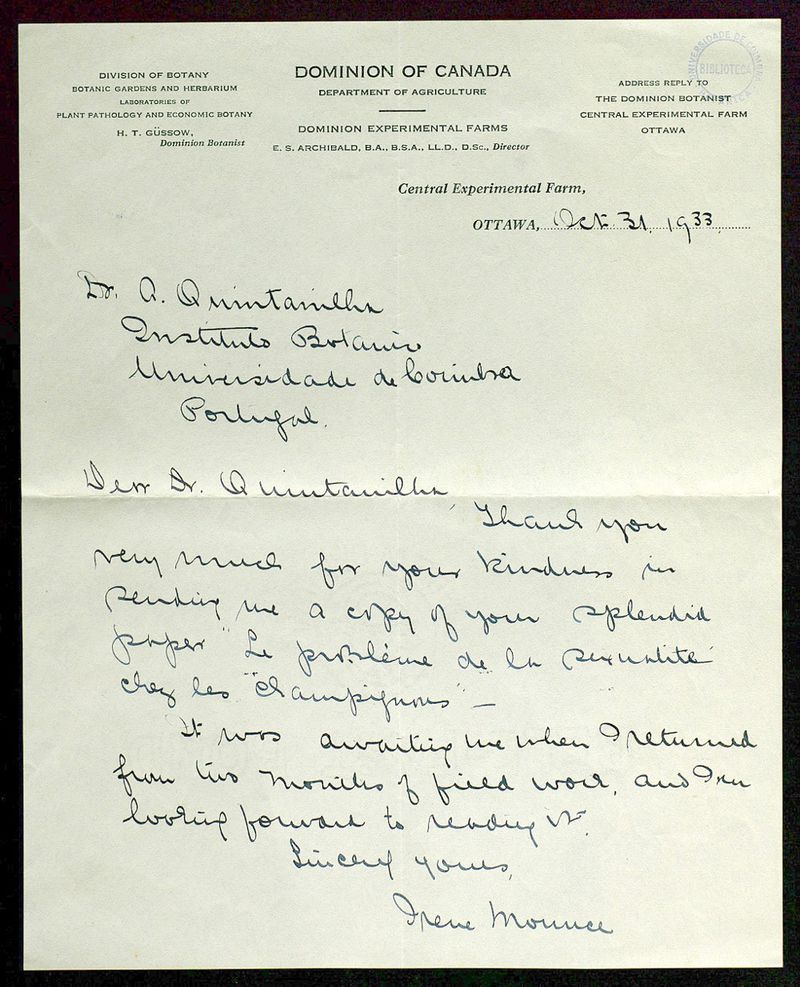 DIVISION OF BOTANY
BOTANIC GARDENS AND HERBARIUM
LABORATORIES OF
PLANT PATHOLOGY AND ECONOMIC BOTANY
H. T. GÜSSOW,
Dominion Botanist
DOMINION OF CANADA
DEPARTMENT OF AGRICULTURE
DOMINION EXPERIMENTAL FARMS
E. S. ARCHIBALD, B.A., B.S.A., LL.D., D.Sc., Director
UNIVERSIDADE DE COIMBRA
BIBLIOTECA
ADDRESS REPLY TO
THE DOMINION BOTANIST
CENTRAL EXPERIMENTAL FARM
OTTAWA
Central Experimental Farm,
OTTAWA, Oct. 31, 1933.
Dr. A. Quintanilha
Instituto Botanico
Universidade de Coimbra
Portugal.
Dear Dr. Quintanilha,
Thank you
very much for your kindness in
sending me a copy of your splendid
paper "Le problème de la sexualité
chez les "Champignons" —
It was awaiting me when I returned
from two months of field work, and I am
looking forward to reading it.
Sincerely yours,
Irene Mounce